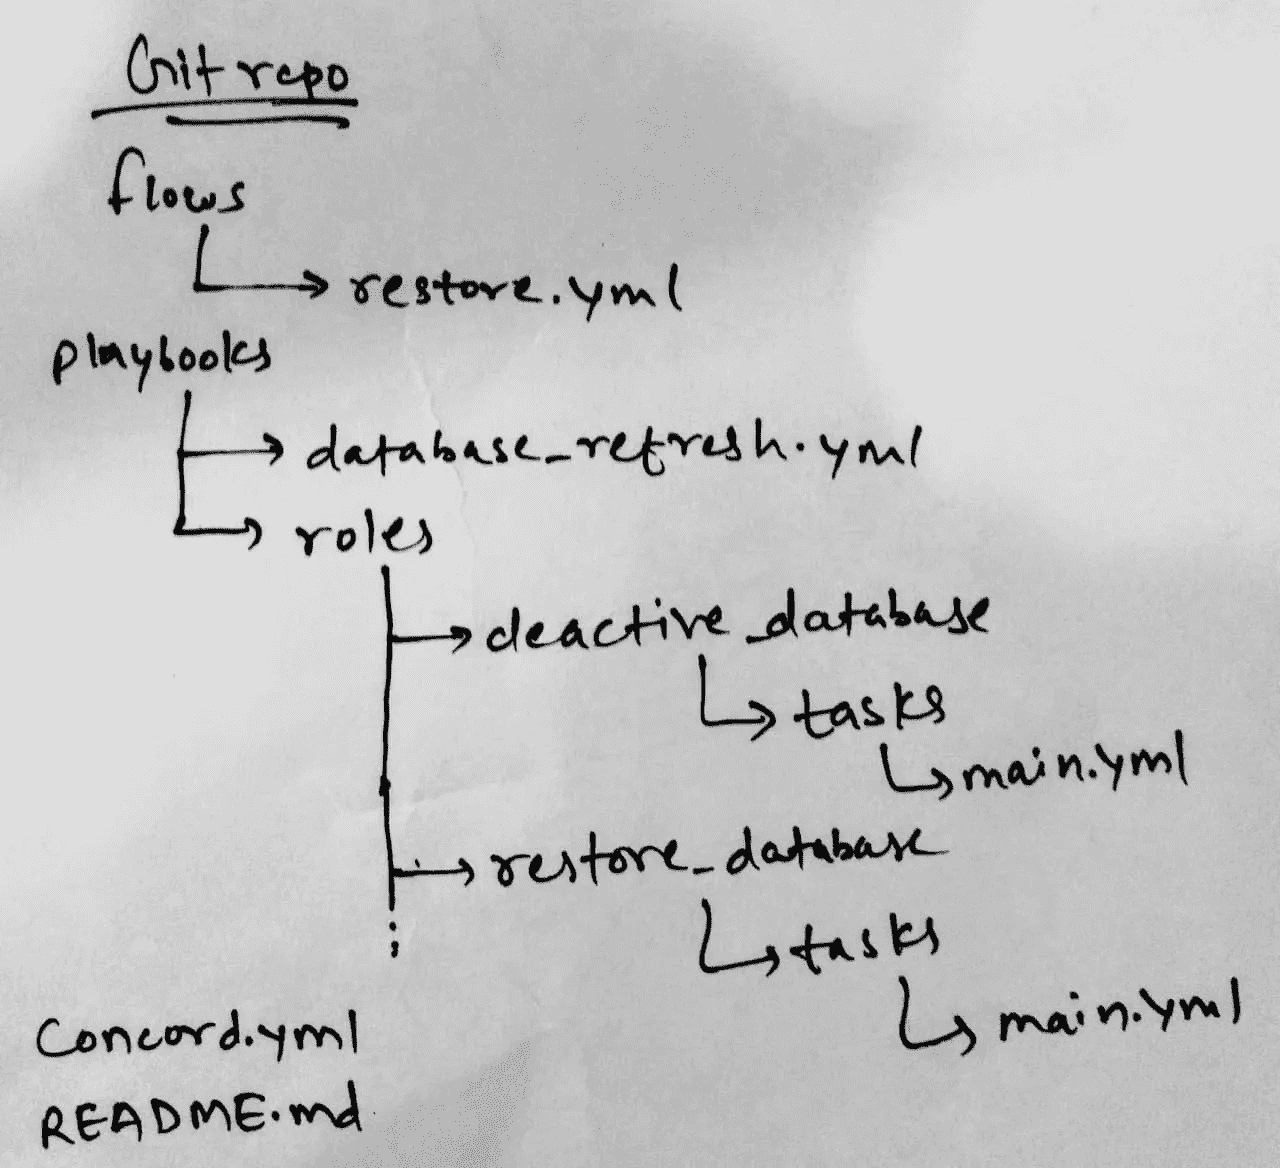 Git repo
flows
restore.yml
playbooks
database_refresh.yml
roles
deactive_database
tasks
main.yml
restore_database
tasks
main.yml
Concord.yml
README.md